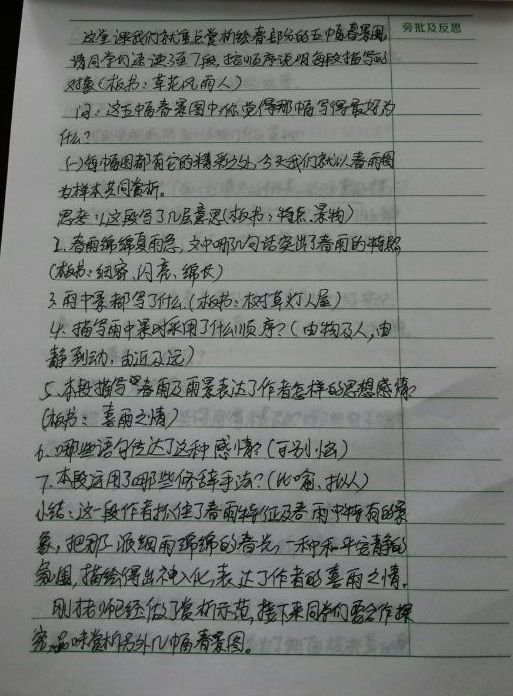 旁批及反思
这堂课我们就重点赏析绘春部分的五中幅春景图,
请同学们速读3至7段,按顺序说明每段描写的
对象(板书:草花风雨人)
问:这五幅春景图中,你觉得那幅写得最好为
什么?
(一)每幅图都有它的精彩之处,今天我们就以春雨图
为样本共同赏析。
思考:1.这段写了几层意思(板书:特点、景物)
2.春雨绵绵夏雨急,文中哪几句话突出了春雨的特点
(板书:细密、闪亮、绵长)
3.雨中景都写了什么.(板书:树草灯人屋)
4.描写雨中景时采用了什么顺序?(由物及人,由
静到动,由近及远)
5.本段描写春雨及雨景表达了作者怎样的思想感情
(板书:喜雨之情)
6.哪些语句传达了这种感情?(可别恼)
7.本段运用了哪些修辞手法?(比喻、拟人)
小结:这一段作者抓住了春雨特征及春雨中特有的景
象,把那一派细雨绵绵的春光,一种和平安静的
氛围,描绘得出神入化,表达了作者的喜雨之情。
刚才老师已经做了赏析示范,接下来同学们要合作探
究,品味赏析另外几幅春景图。